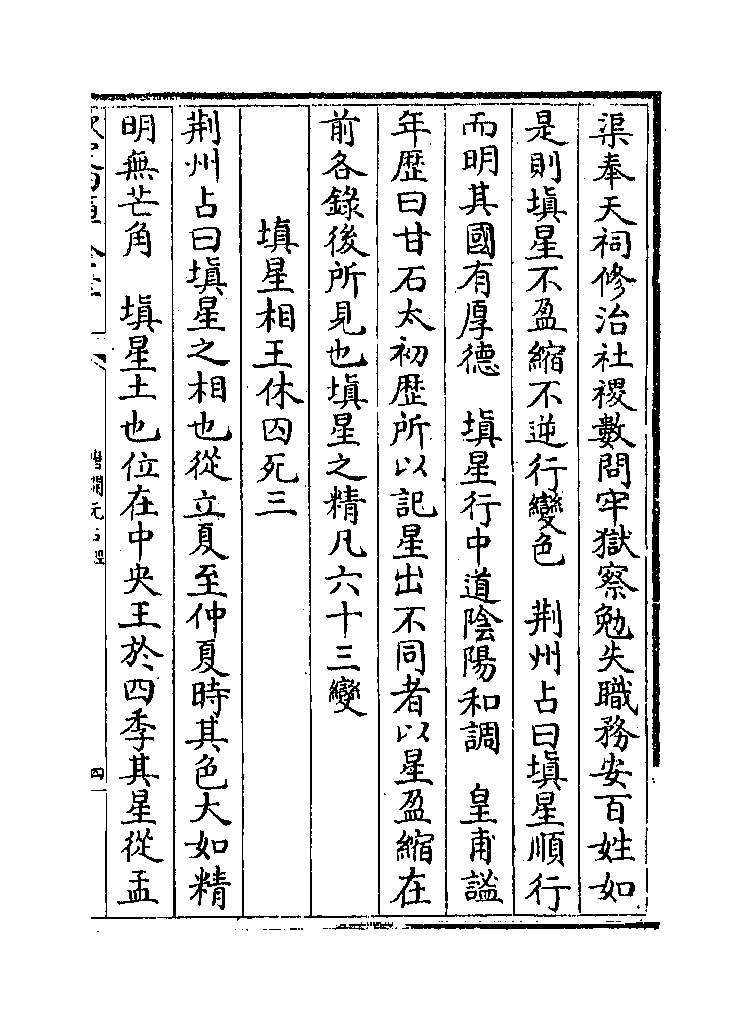 渠奉天祠修治社稷數問牢獄察勉失職務安百姓如
是則填星不盈縮不逆行變色　荆州占曰填星順行
而明其國有厚德　填星行中道陰陽和調　皇甫謐
年歴曰甘石太初歴所以記星出不同者以星盈縮在
前各錄後所見也填星之精凡六十三變
填星相王休囚死三
荆州占曰填星之相也從立夏至仲夏時其色大如精
明無芒角　填星土也位在中央王於四季其星從孟
唐開元占經
四